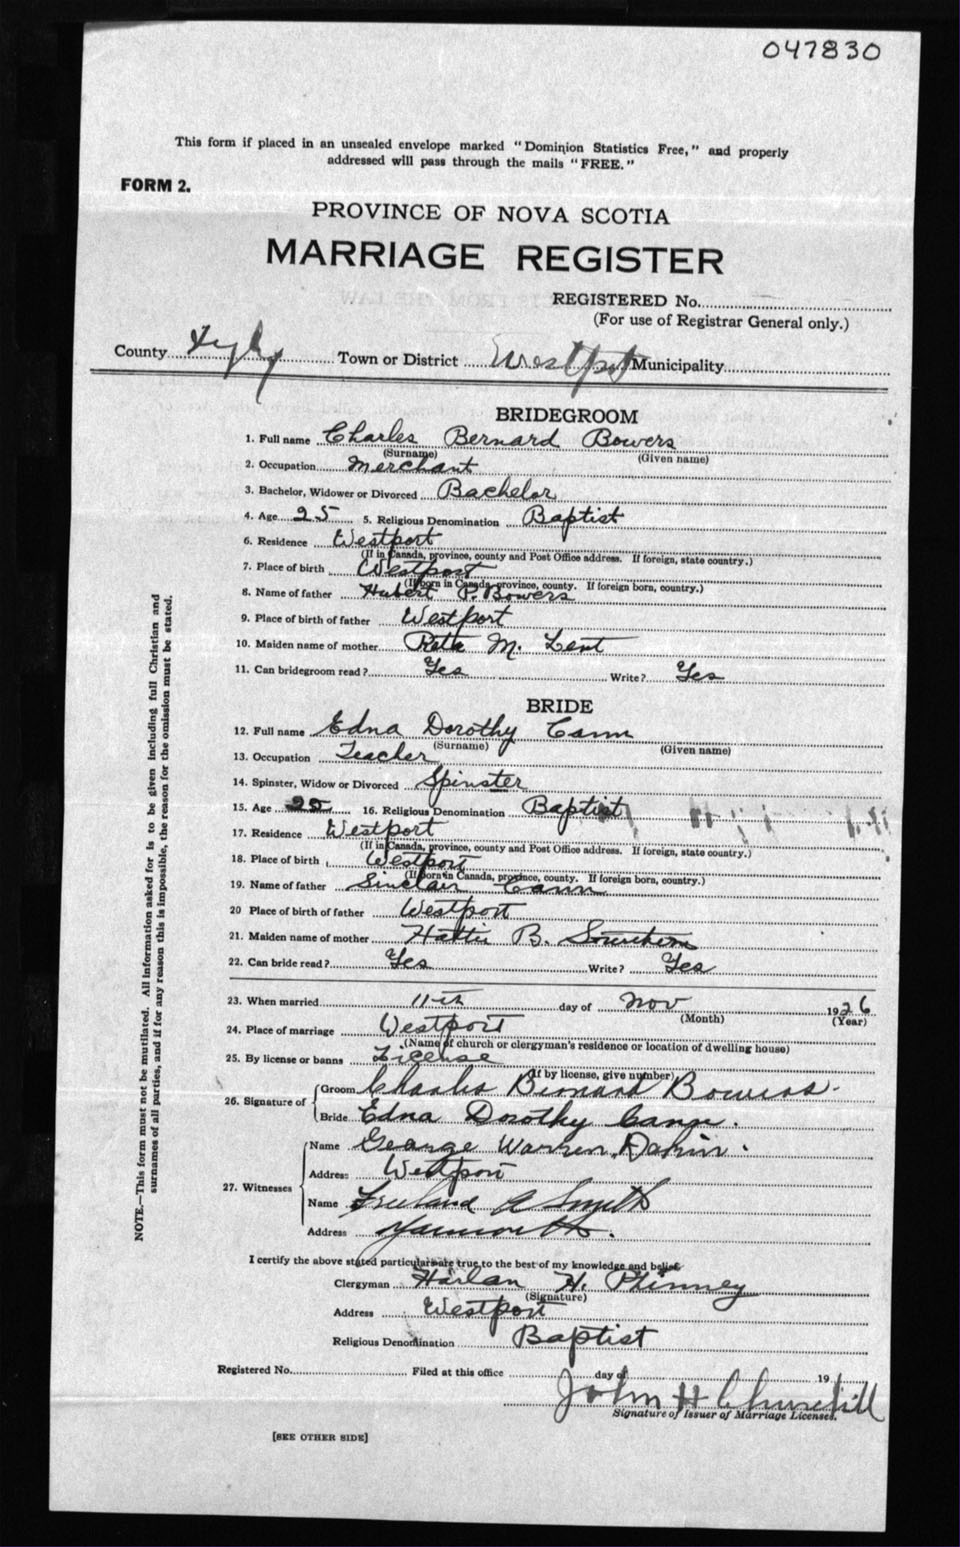 047830
This form if placed in an unsealed envelope marked "Dominion Statistics Free," and properly
addressed will pass through the mails "FREE."
FORM 2.
PROVINCE OF NOVA SCOTIA
MARRIAGE REGISTER
REGISTERED No.
(For use of Registrar General only.)
County Digby Town or District Westport Municipality
BRIDEGROOM
1. Full name Charles Bernard Bowers
(Surname) (Given name)
2. Occupation Merchant
3. Bachelor, Widower or Divorced Bachelor
4. Age 25 5. Religious Denomination Baptist
6. Residence Westport
(If in Canada, province, county and Post Office address. If foreign, state country.)
7. Place of birth Westport
(If born in Canada, province, county. If foreign born, country.)
8. Name of father Hubert P. Bowers
9. Place of birth of father Westport
10. Maiden name of mother Reta M. Lent
11. Can bridegroom read? Yes Write? Yes
BRIDE
12. Full name Edna Dorothy Cann
(Surname) (Given name)
13. Occupation Teacher
14. Spinster, Widow or Divorced Spinster
15. Age 25 16. Religious Denomination Baptist
17. Residence Westport
(If in Canada, province, county and Post Office address. If foreign, state country.)
18. Place of birth Westport
(If born in Canada, province, county. If foreign born, country.)
19. Name of father Sinclair Cann
20 Place of birth of father Westport
21. Maiden name of mother Hattie B.
22. Can bride read? Yes Write? Yes
23. When married 11th day of Nov 1926
(Month) (Year)
24. Place of marriage Westport
(Name of church or clergyman's residence or location of dwelling house)
25. By license or banns License
(If by license, give number)
26. Signature of
Groom Charles Bernard Bowers.
Bride Edna Dorothy Cann.
27. Witnesses
Name George Warren
Address Westport
Name Freeland A Smith
Address Yarmouth.
I certify the above stated particulars are true to the best of my knowledge and belief.
Clergyman Harlan H. Phinney
(Signature)
Address Westport
Religious Denomination Baptist
Registered No. Filed at this office day of 19
John H Churchill
Signature of Issuer of Marriage Licenses.
[SEE OTHER SIDE]
NOTE.—This form must not be mutilated. All information asked for is to be given including full Christian and
surnames of all parties, and if for any reason this is impossible, the reason for the omission must be stated.